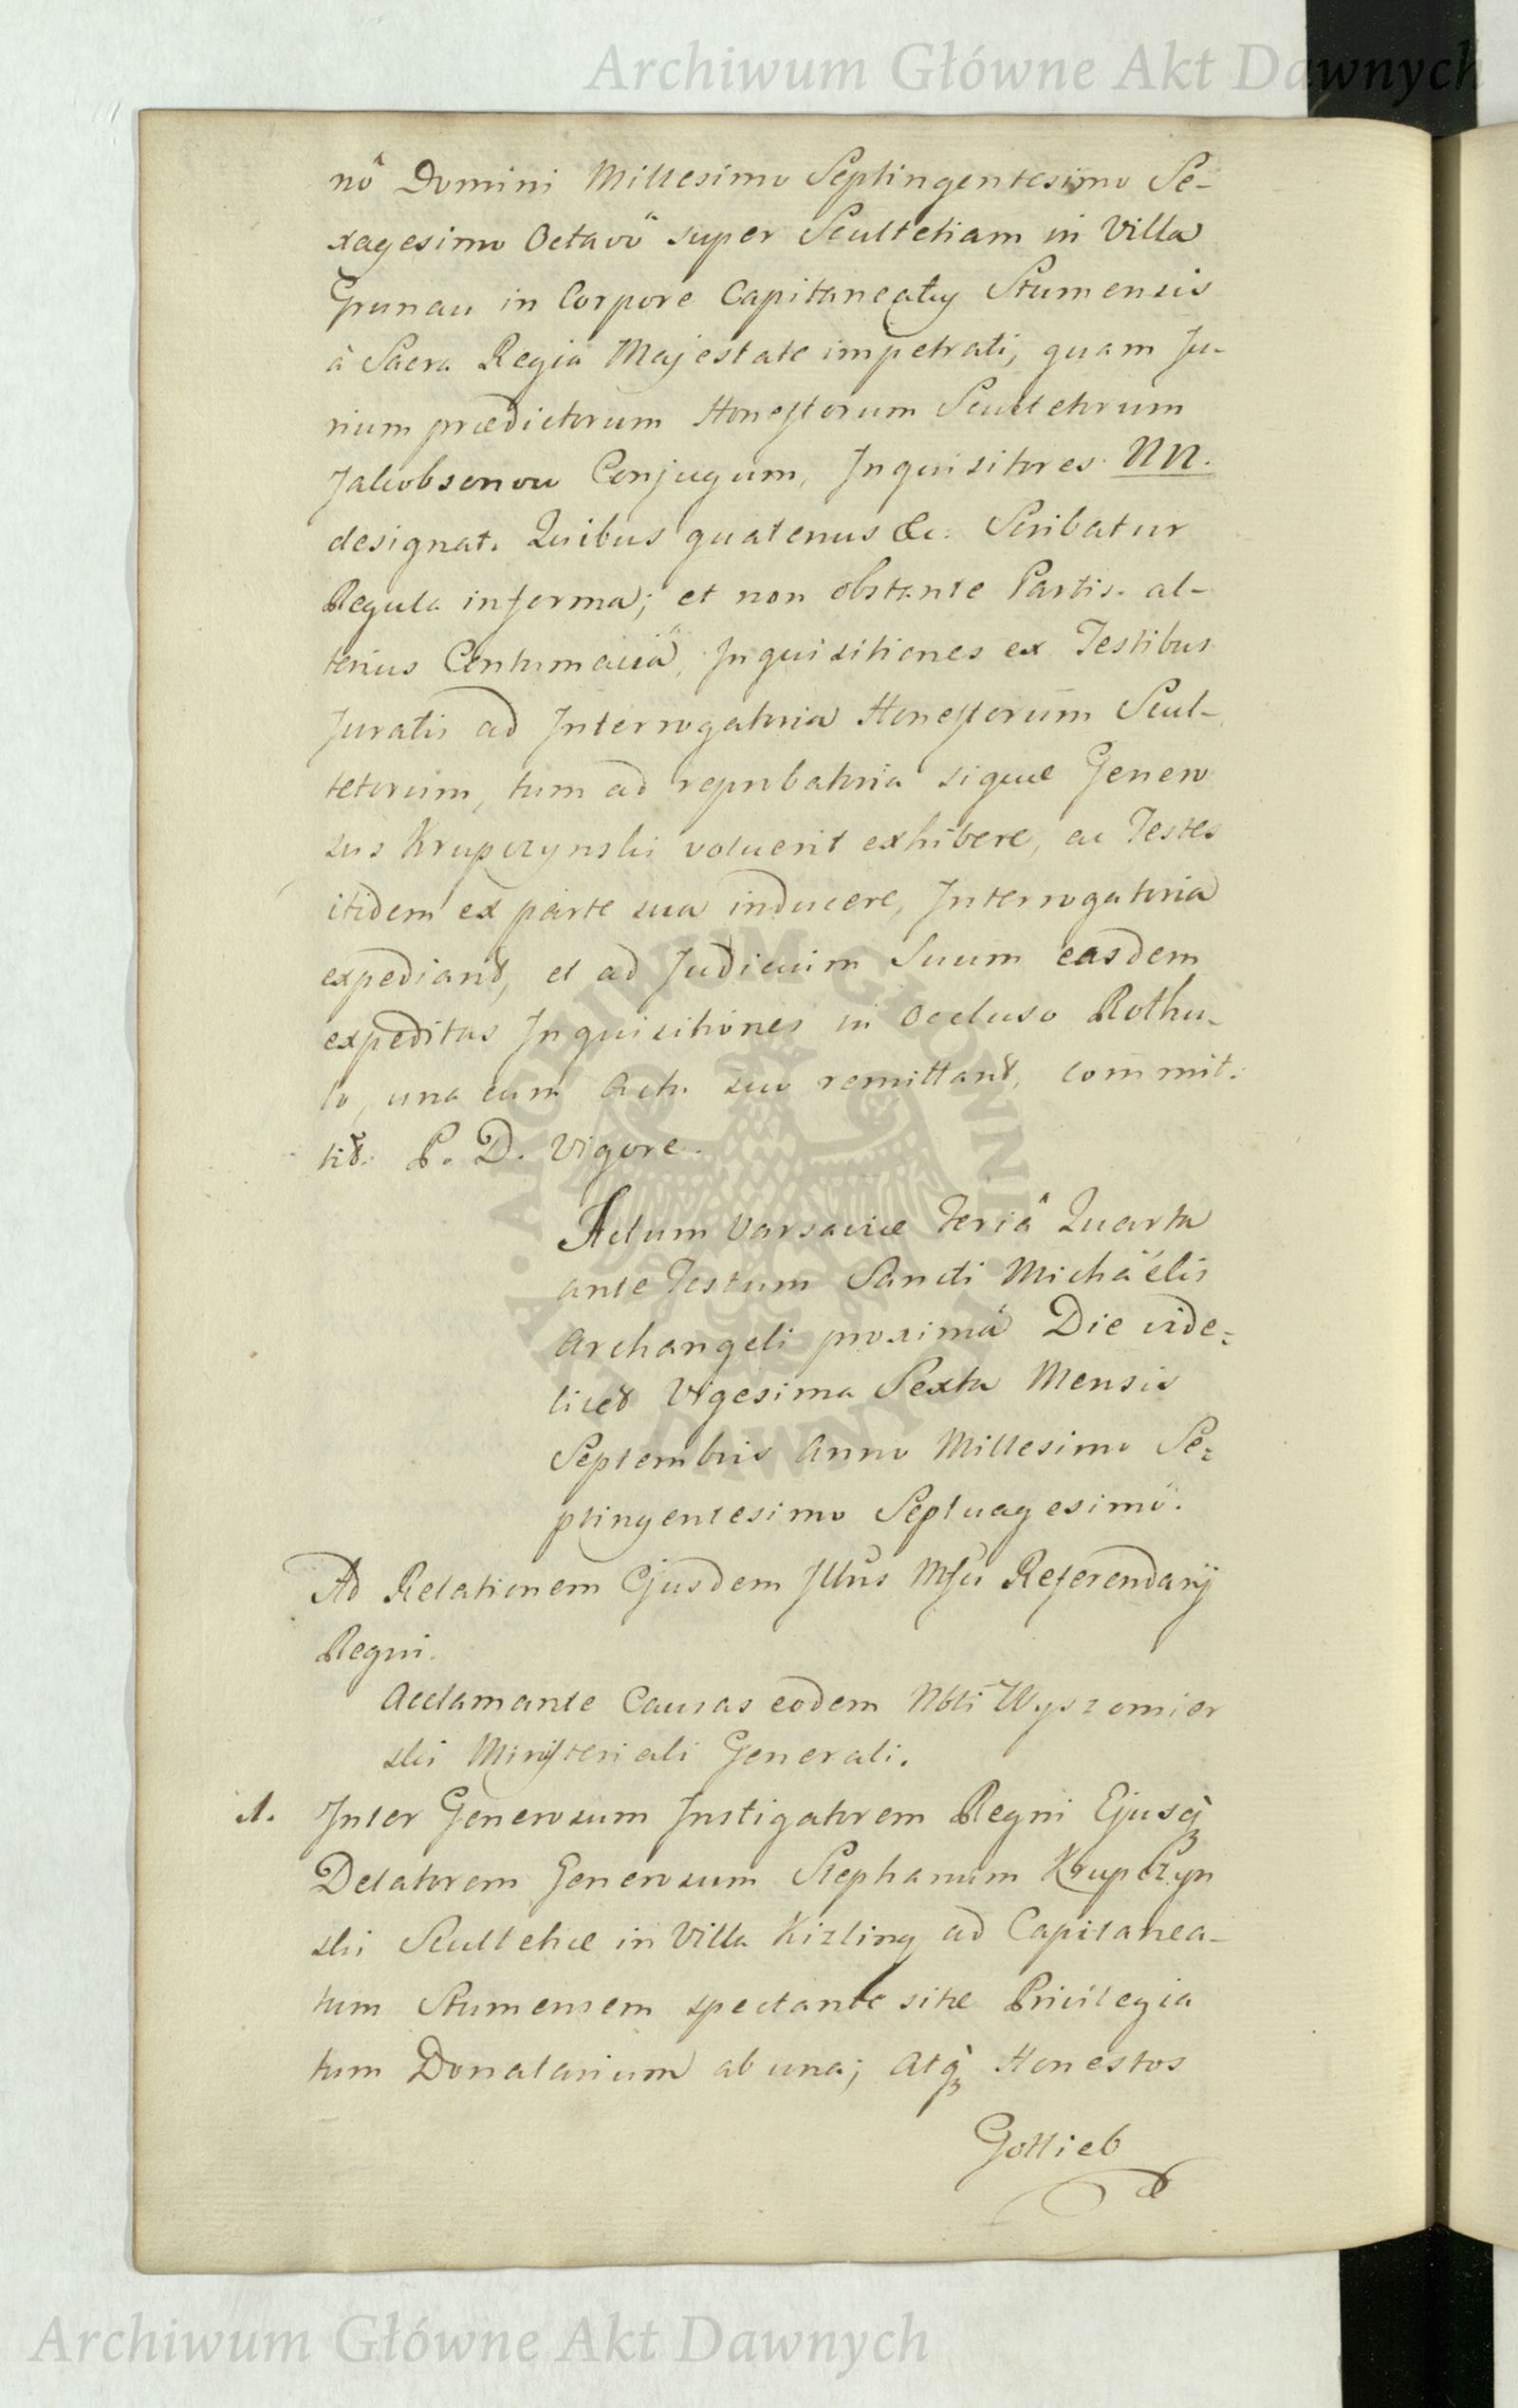 Archiwum Główne Akt Dawnych
nô Domini Millesimo Septingentesimo Se-
xagesimo Octavo super Scultetiam in Villa
Grunau in Corpore Capitaneatus Stumensis
à Sacra Regia Majestate impetrati, quam Ju-
rium prædictorum Honestorum Scultetorum
Jakobsonow Conjugum, Inquisitores NN.
designat. Quibus quatenus &c: Scribatur
Regula in forma; et non obstante Partis. al-
terius Contumaciâ, Inquisitiones ex Testibus
Juratis ad Interrogatoria Honestorum Scul-
tetorum, tum ad reprobatoria siquæ Genero
sus Krupczynski voluerit exhibere, ac Testes
itidem ex parte sua inducere, Interrogatoria
expediant, et ad Judicium Suum easdem
expeditas Inquisitiones in Occluso Rothu-
lo, una cum Actu suo remittant, commit.
tit. P. D. vigore.
Actum Varsaviæ Feriâ Quarta
ante Festum Sancti Michaëlis
Archangeli proximâ Die vide-
licet Vigesima Sexta Mensis
Septembris Anno Millesimo Se-
ptingentesimo Septuagesimô.
Ad Relationem Ejusdem Illus Msci Referendarij
Regni.
Acclamante Causas eodem Nbli Wyszomier
ski Ministeriali Generali.
1. Inter Generosum Instigatorem Regni Ejusq
Delatorem Generosum Stephanum Krupczyn
ski Scultetiæ in Villa Kizling ad Capitanea-
tum Stumensem spectante sitæ Privilegia
tum Donatarium ab una; Atq Honestos
Gottlieb
Archiwum Główne Akt Dawnych